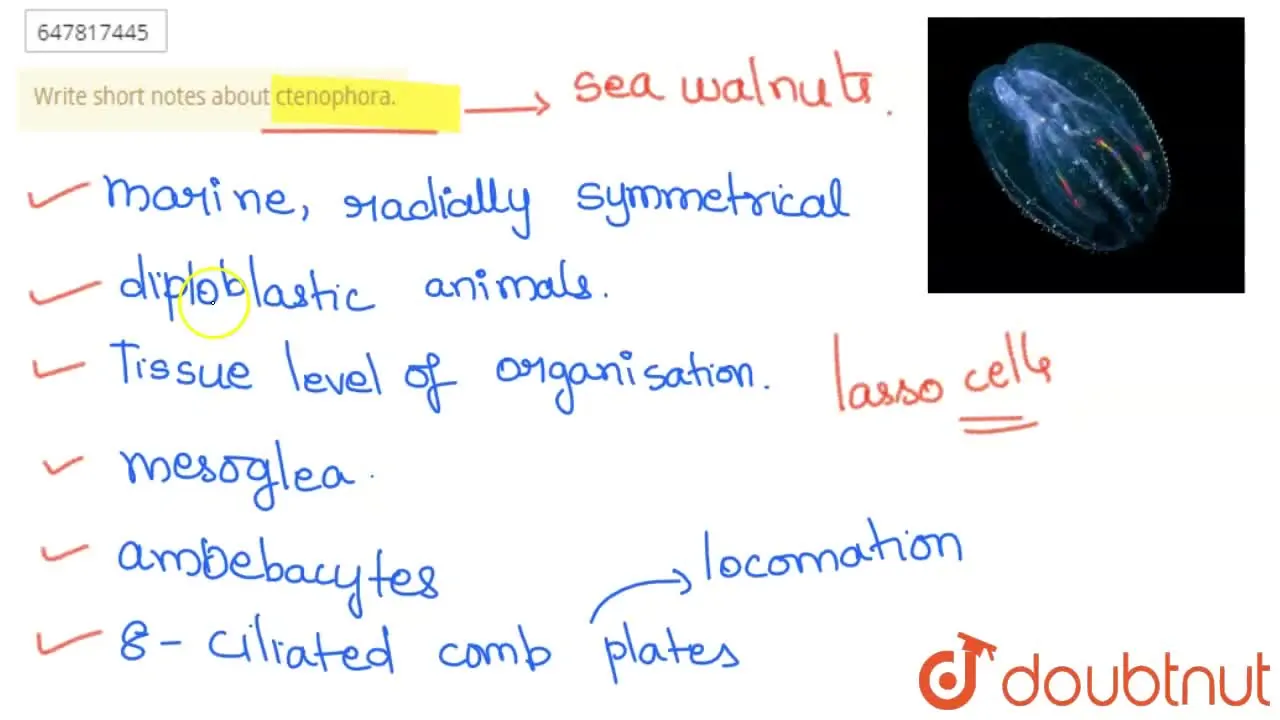 647817445
Write short notes about ctenophora.
sea walnuts.
marine, radially symmetrical
diploblastic animals.
Tissue level of organisation.
lasso cells
mesoglea.
amoebacytes
locomation
8- ciliated comb plates
doubtnut